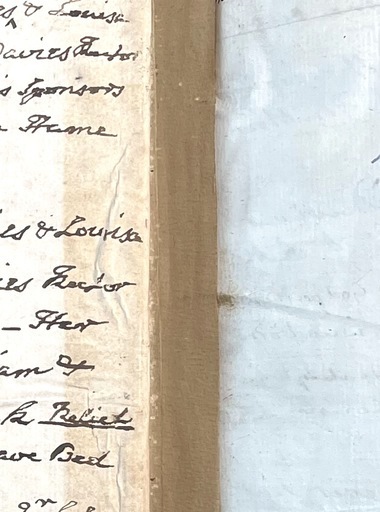 es & Louisa
Davies Rector
s Sponsors
Hame
es & Louisa
ies Rector
– Her
iam &
Relict
ave Bed